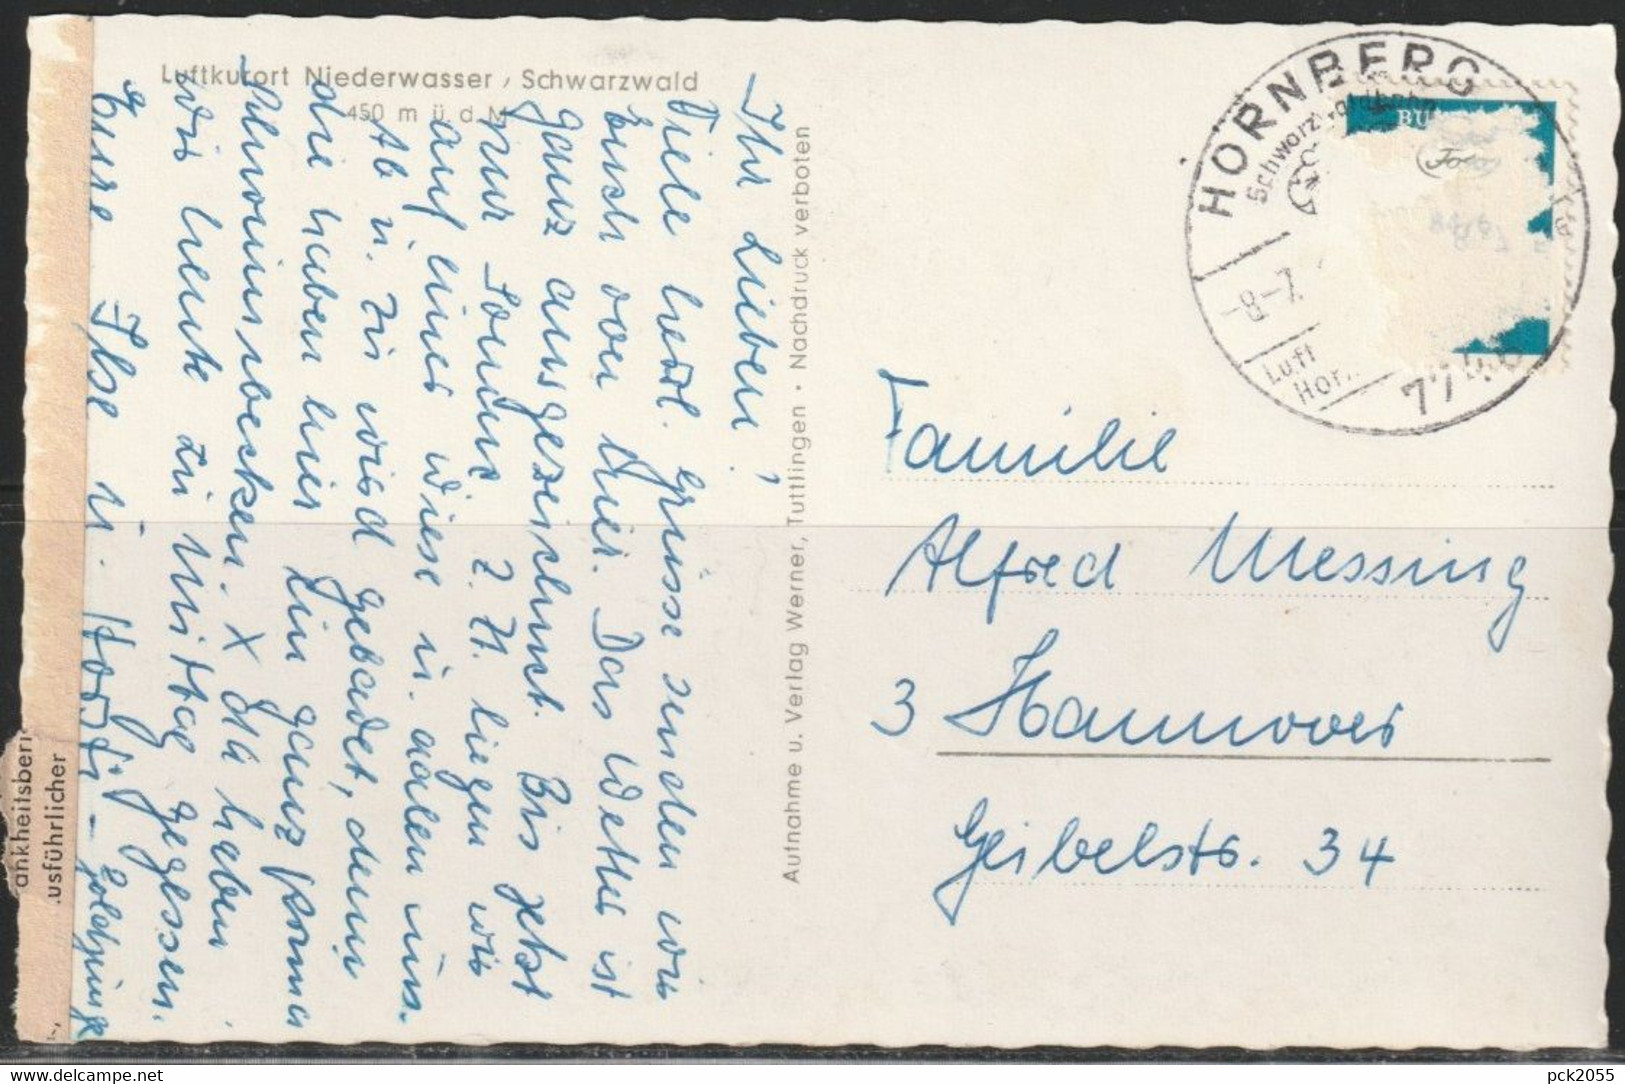 Luftkurort Niederwasser / Schwarzwald
450 m ü. d. M
Ihr Lieben!
Viele herzl. Grüsse senden wir
Euch von hier. Das Wetter ist
ganz ausgezeichnet. Bis jetzt
nur Sonne z. Zt. liegen wir
auf einer Wiese u. aalen uns.
Ab u. zu wird gebadet, denn
die haben hier ein ganz prima
Schwimmbecken. X Da haben
wir heute zu Mittag gegessen.
Eure Ilse u.
Autnahme u. Verlag Werner, Tuttlingen · Nachdruck verboten
HORNBERG
Schwarzwaldbahn
-8-7.
Luft
Hor
77
BU
Familie
Alfred Messing
3 Hannover
Geibelstr. 34
ankheitsberi
usführlicher
delcampe.net
pck2055